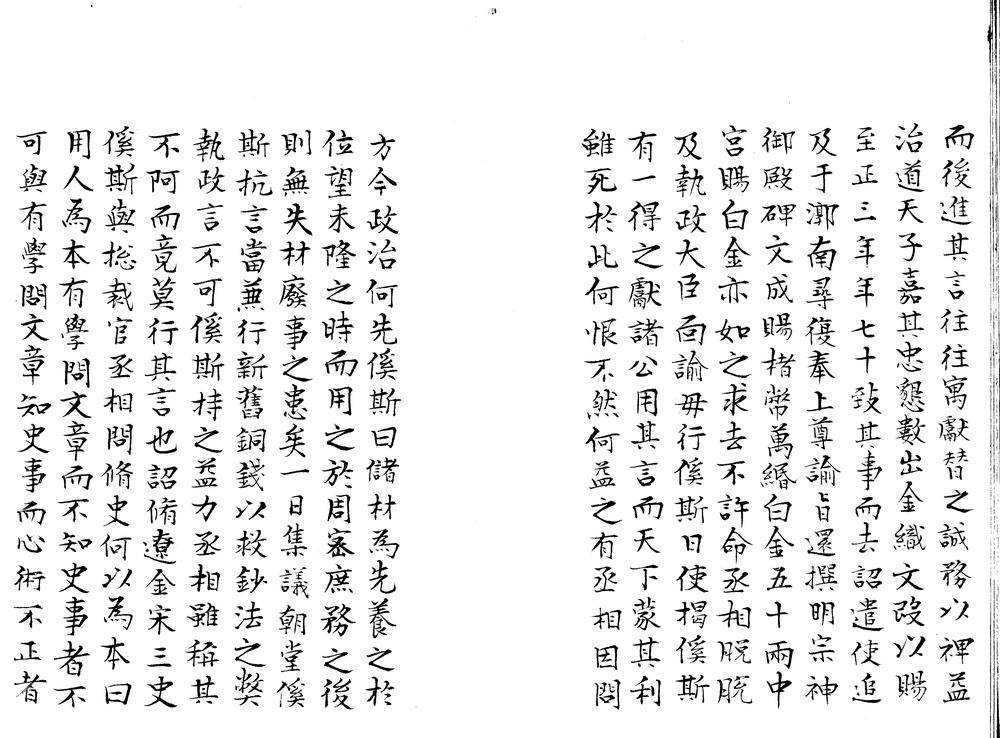 而後進其言往往寓獻替之誠務以裨益
治道天子嘉其忠懇數出金織文改以賜
至正三年年七十致其事而去詔遣使追
及于漷南尋復奉上尊諭旨還撰明宗神
御殿碑文成賜楮幣萬緡白金五十兩中
宮賜白金亦如之求去不許命丞相脫脫
及執政大臣面諭毋行傒斯曰使揭傒斯
有一得之獻諸公用其言而天下蒙其利
雖死於此何恨不然何益之有丞相因問
方今政治何先傒斯曰儲材為先養之於
位望未隆之時而用之於周密庶務之後
則無失材廢事之患矣一日集議朝堂傒
斯抗言當兼行新舊銅錢以救鈔法之弊
執政言不可傒斯持之益力丞相雖稱其
不阿而竟莫行其言也詔脩遼金宋三史
傒斯與總裁官丞相問脩史何以為本曰
用人為本有學問文章而不知史事者不
可與有學問文章知史事而心術不正者